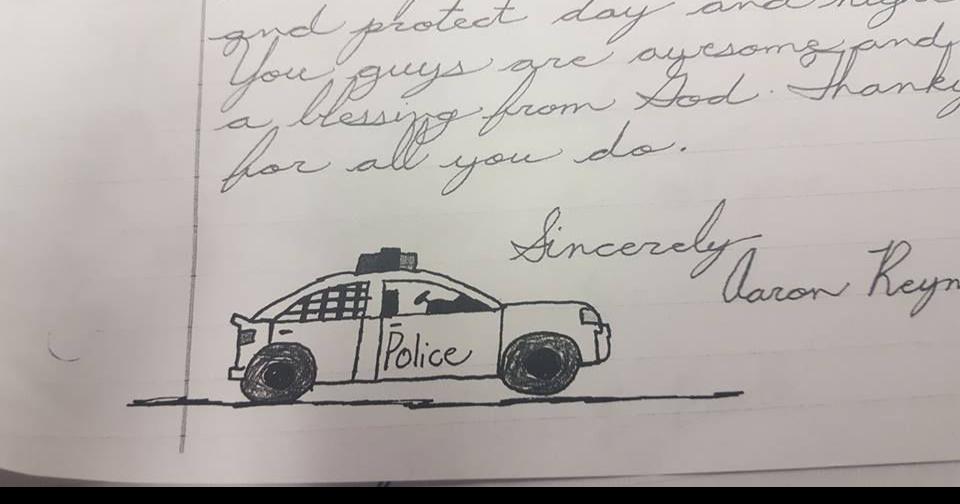 and protect day and
You guys are awesome and
a blessing from God. Thank
for all you do.
Sincerely
Aaron
Police